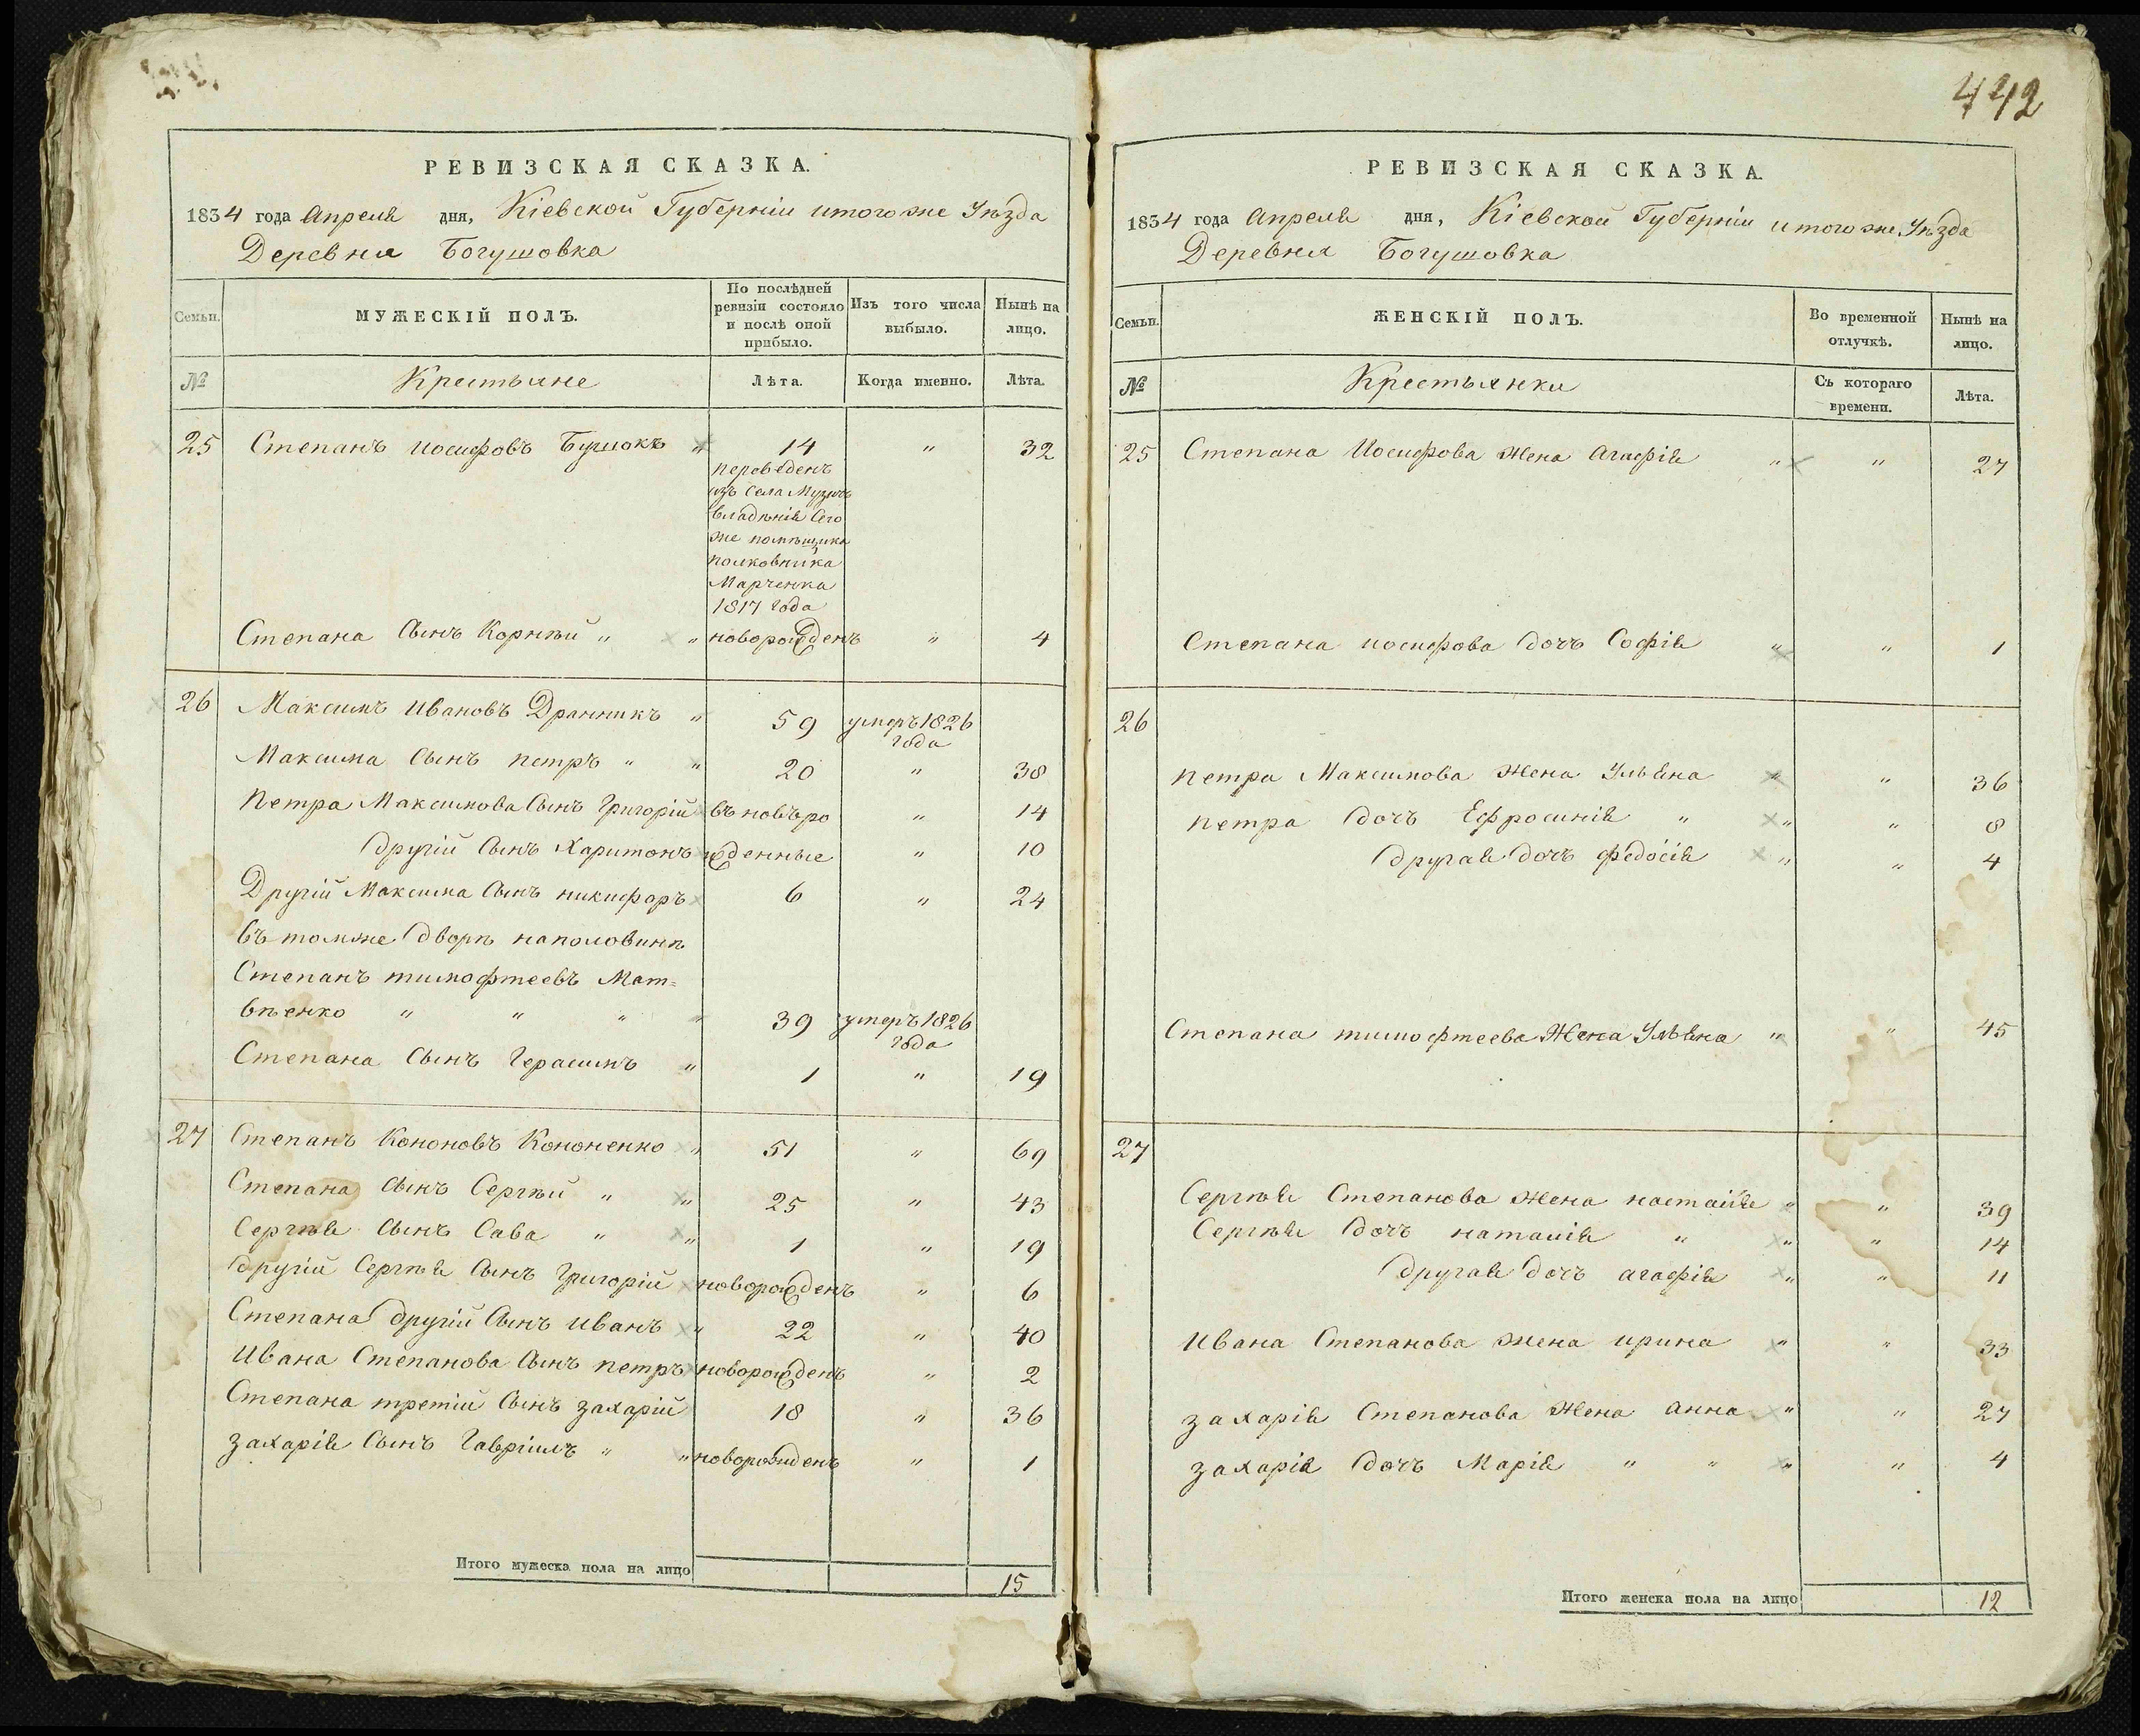 442
РЕВИЗСКАЯ СКАЗКА.
1834 года Апреля дня, Кіевской Губерніи итогоже Уѣзда
Деревня Богушовка
Семьи.
МУЖЕСКІЙ ПОЛЪ.
По послѣдней ревизіи состояло и послѣ оной прибыло.
Изъ того числа выбыло.
Нынѣ на лицо.
№
Крестьяне
Лѣта.
Когда именно.
Лѣта.
25 Степанъ иосифовъ " 14 " 32
переведенъ
изъ Села
владѣнія Сего
же помѣщика
полковника
Марченка
1817 года
Степана Сынъ Корнѣй " " новорожденъ " 4
26 Максимъ Ивановъ Дранникъ " 59 умеръ 1826
года
Максима Сынъ петръ " " 20 " 38
Петра Максимова Сынъ Григорій въ новѣро " 14
другій Сынъ Харитонъ жденные " 10
Другій Максима Сынъ никифоръ 6 " 24
въ томже дворѣ наполовинѣ
Степанъ тимофтеевъ Мат=
вѣенко " " " " 39 умеръ 1826
года
Степана Сынъ Герасимъ " 1 " 19
27 Степанъ Кононовъ Кононенко " 51 " 69
Степана Сынъ Сергѣй " " 25 " 43
Сергѣя Сынъ Сава " " 1 " 19
другій Сергѣя Сынъ Григорій новорожденъ " 6
Степана другій Сынъ Иванъ " 22 " 40
Ивана Степанова Сынъ петръ новорожденъ " 2
Степана третій Сынъ захарій 18 " 36
захарія Сынъ Гавріилъ " " новорожденъ " 1
Итого мужеска пола на лицо 15
РЕВИЗСКАЯ СКАЗКА.
1834 года Апреля дня, Кіевской Губерніи итогоже Уѣзда
Деревня Богушовка
Семьи.
ЖЕНСКІЙ ПОЛЪ.
Во временной отлучкѣ.
Нынѣ на лицо.
№
Крестьянки
Съ котораго времени.
Лѣта.
25 Степана Иосифова жена Агафія " " 27
Степана иосифова дочъ Софія " " 1
26
петра Максимова жена Ульяна " " 36
петра дочъ Ефросинія " " " 8
другая дочъ федосія " " 4
Степана тимофтеева Жена Ульяна " " 45
27
Сергѣя Степанова жена настасія " " 39
Сергѣя дочъ наталія " " " 14
другая дочъ агафія " " 11
Ивана Степанова жена ирина " " 33
захарія Степанова жена анна " " 27
захарія дочъ Марія " " " " 4
Итого женска пола на лицо 12